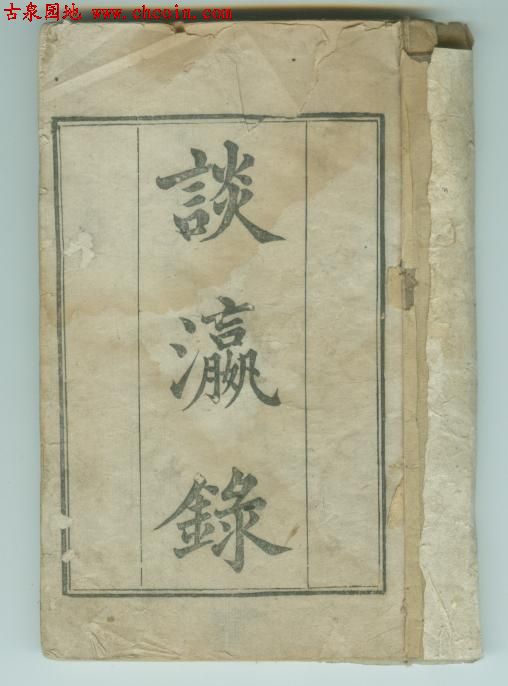 古泉园地 www.chcoin.com
談
瀛
錄